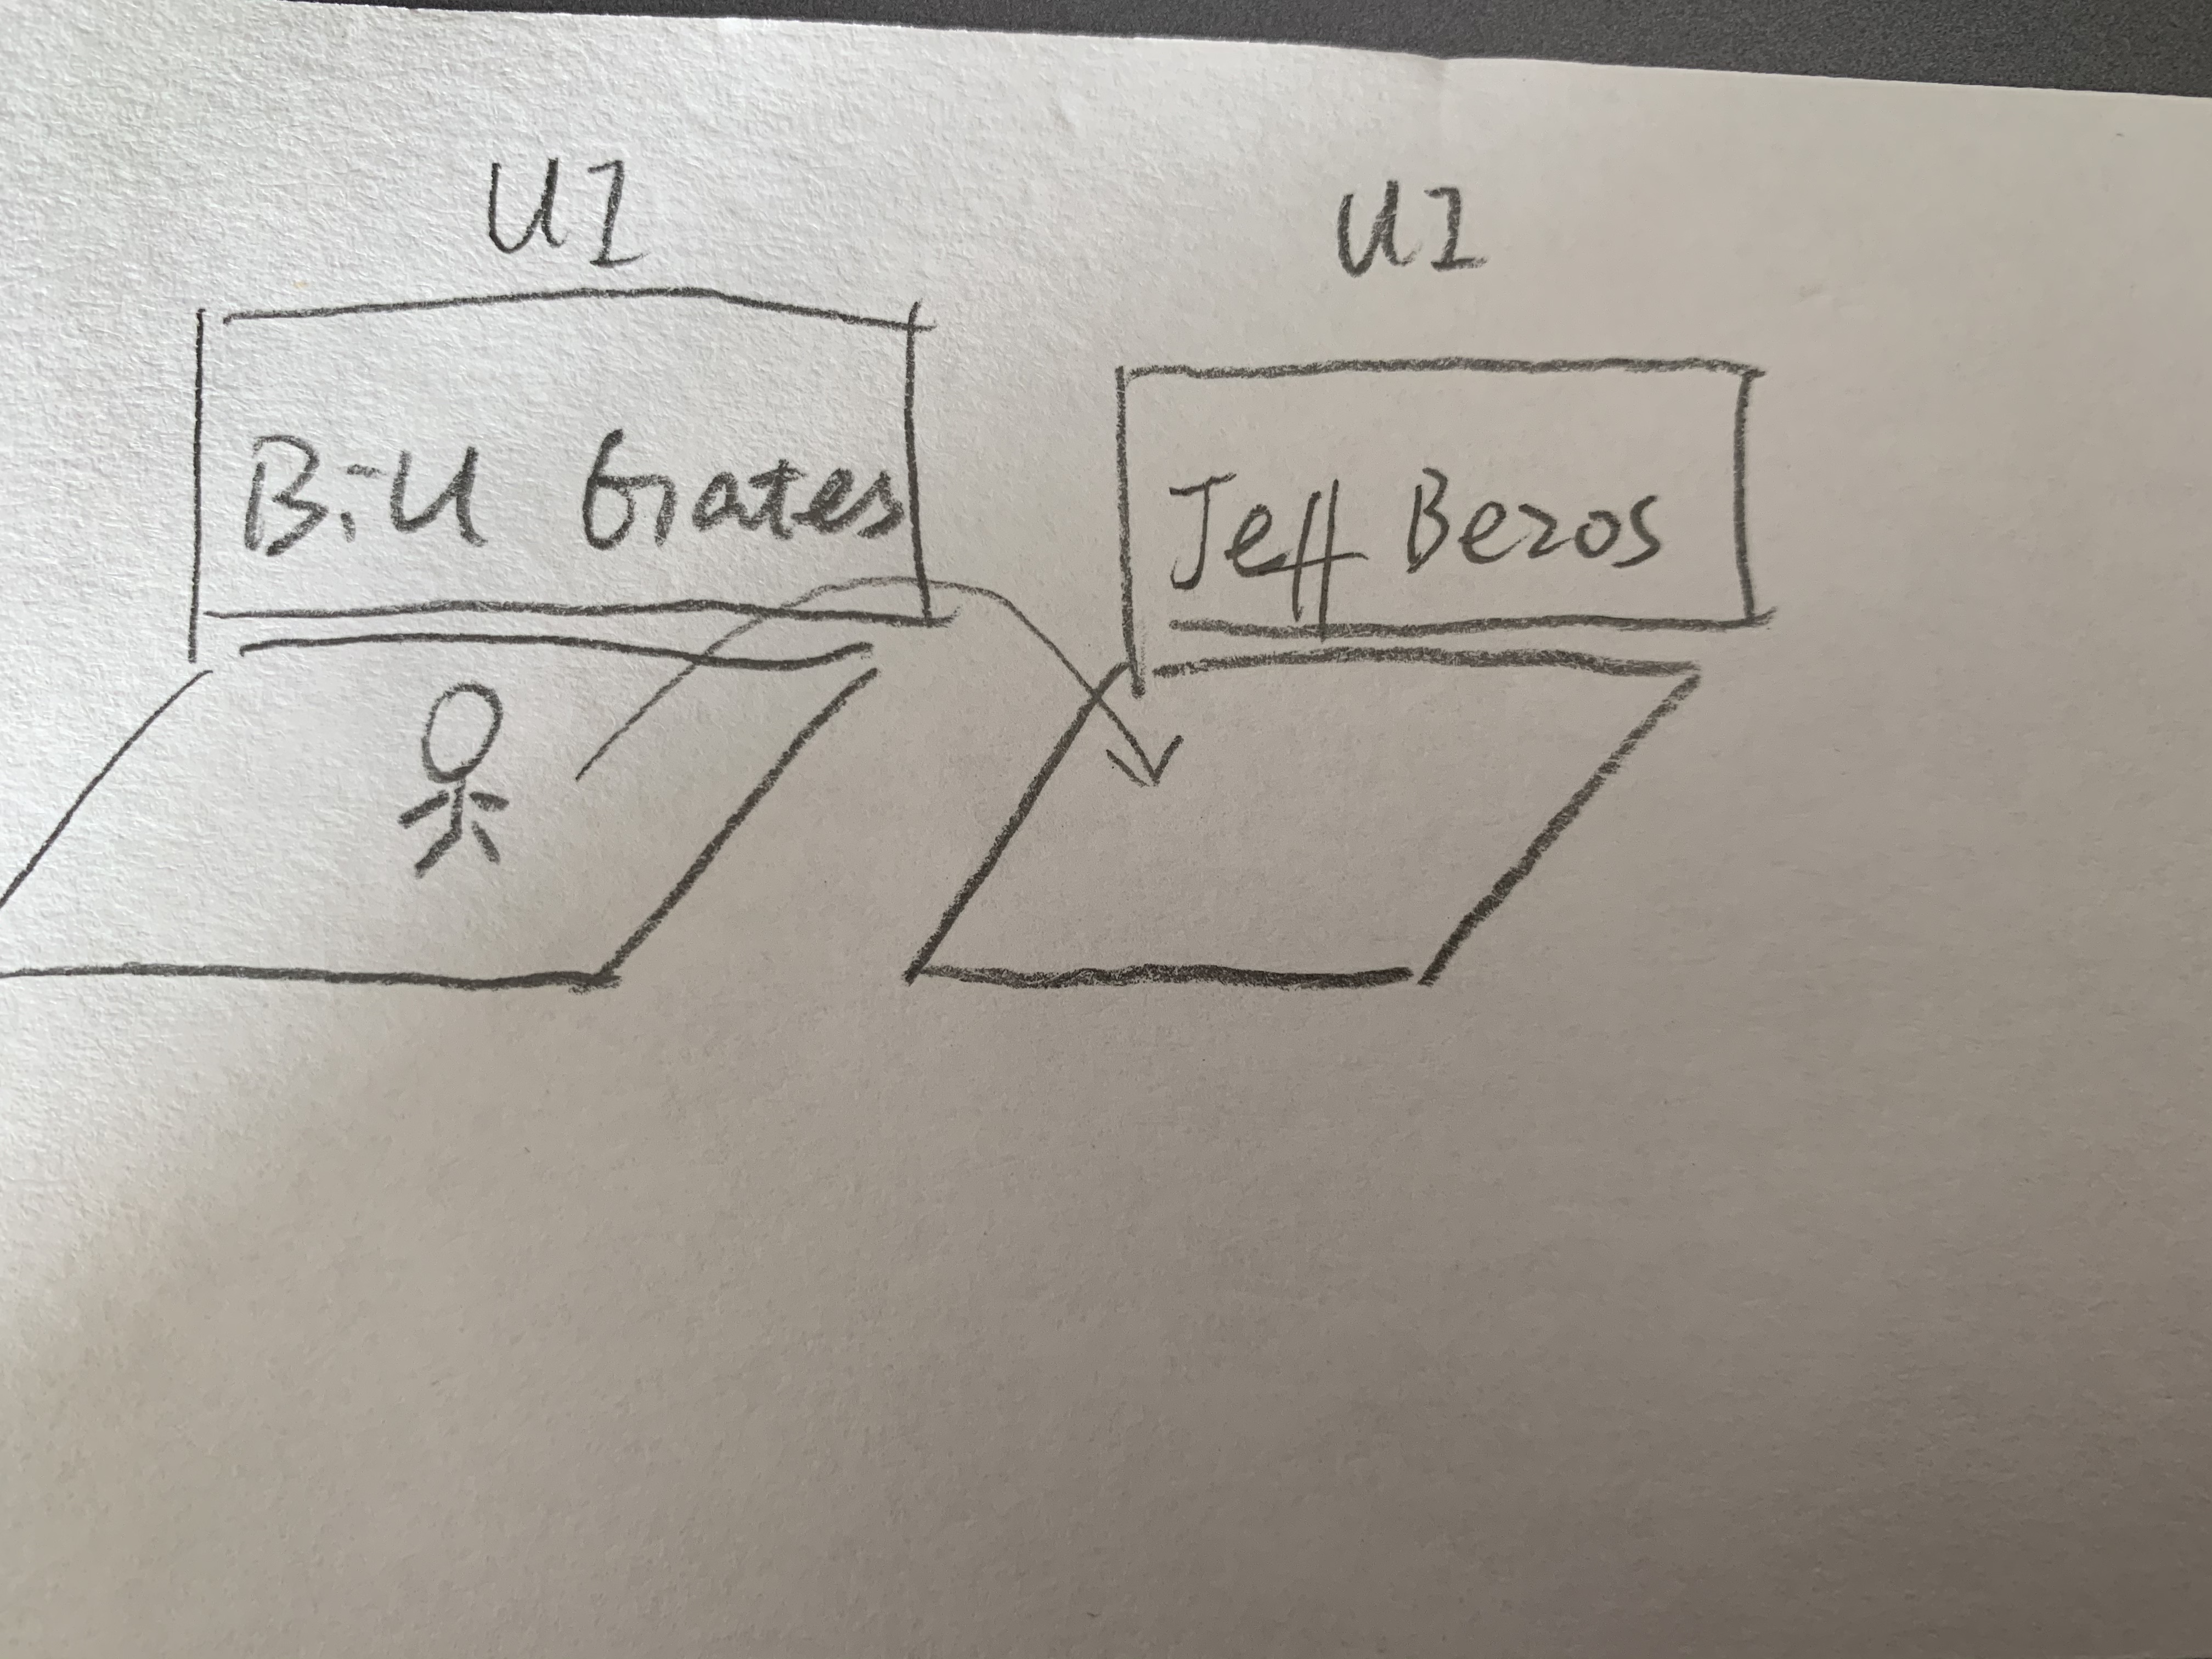 UI
UI
Bill Gates
Jeff Bezos